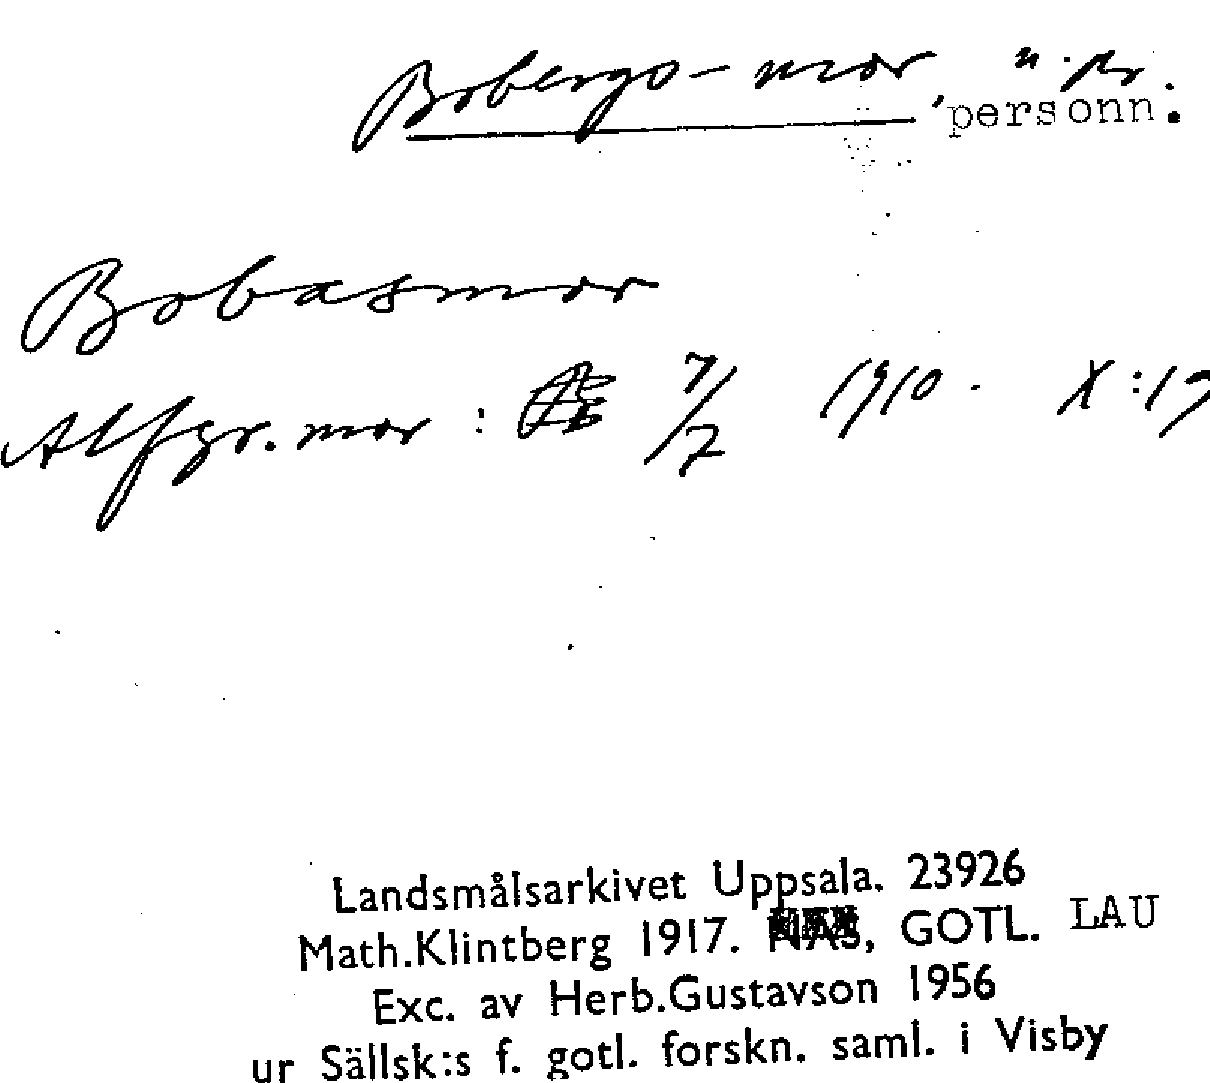 Bobergs-mor n. pr.
, personn.
Bobasmor
Alfgr. mor : 7/7 1910. X:17
Landsmålsarkivet Uppsala. 23926
Math.Klintberg 1917. NÄS, GOTL. LAU
Exc. av Herb.Gustavson 1956
ur Sällsk:s f. gotl. forskn. saml. i Visby